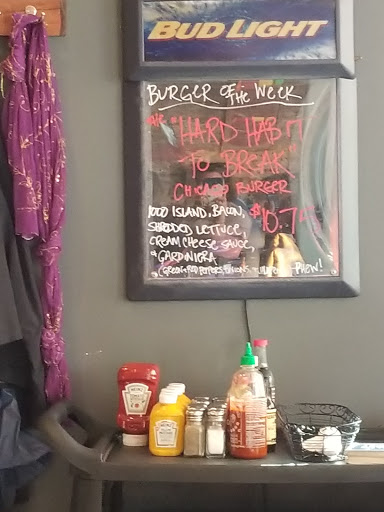 BUD LIGHT
BURGER OF THE WEEK
THE "HARD HABIT
TO BREAK"
CHICAGO BURGER
1000 ISLAND, BACON,
SHREDDED LETTUCE,
CREAM CHEESE SAUCE,
& GARDINIERA
PHEW!
HEINZ
HEINZ